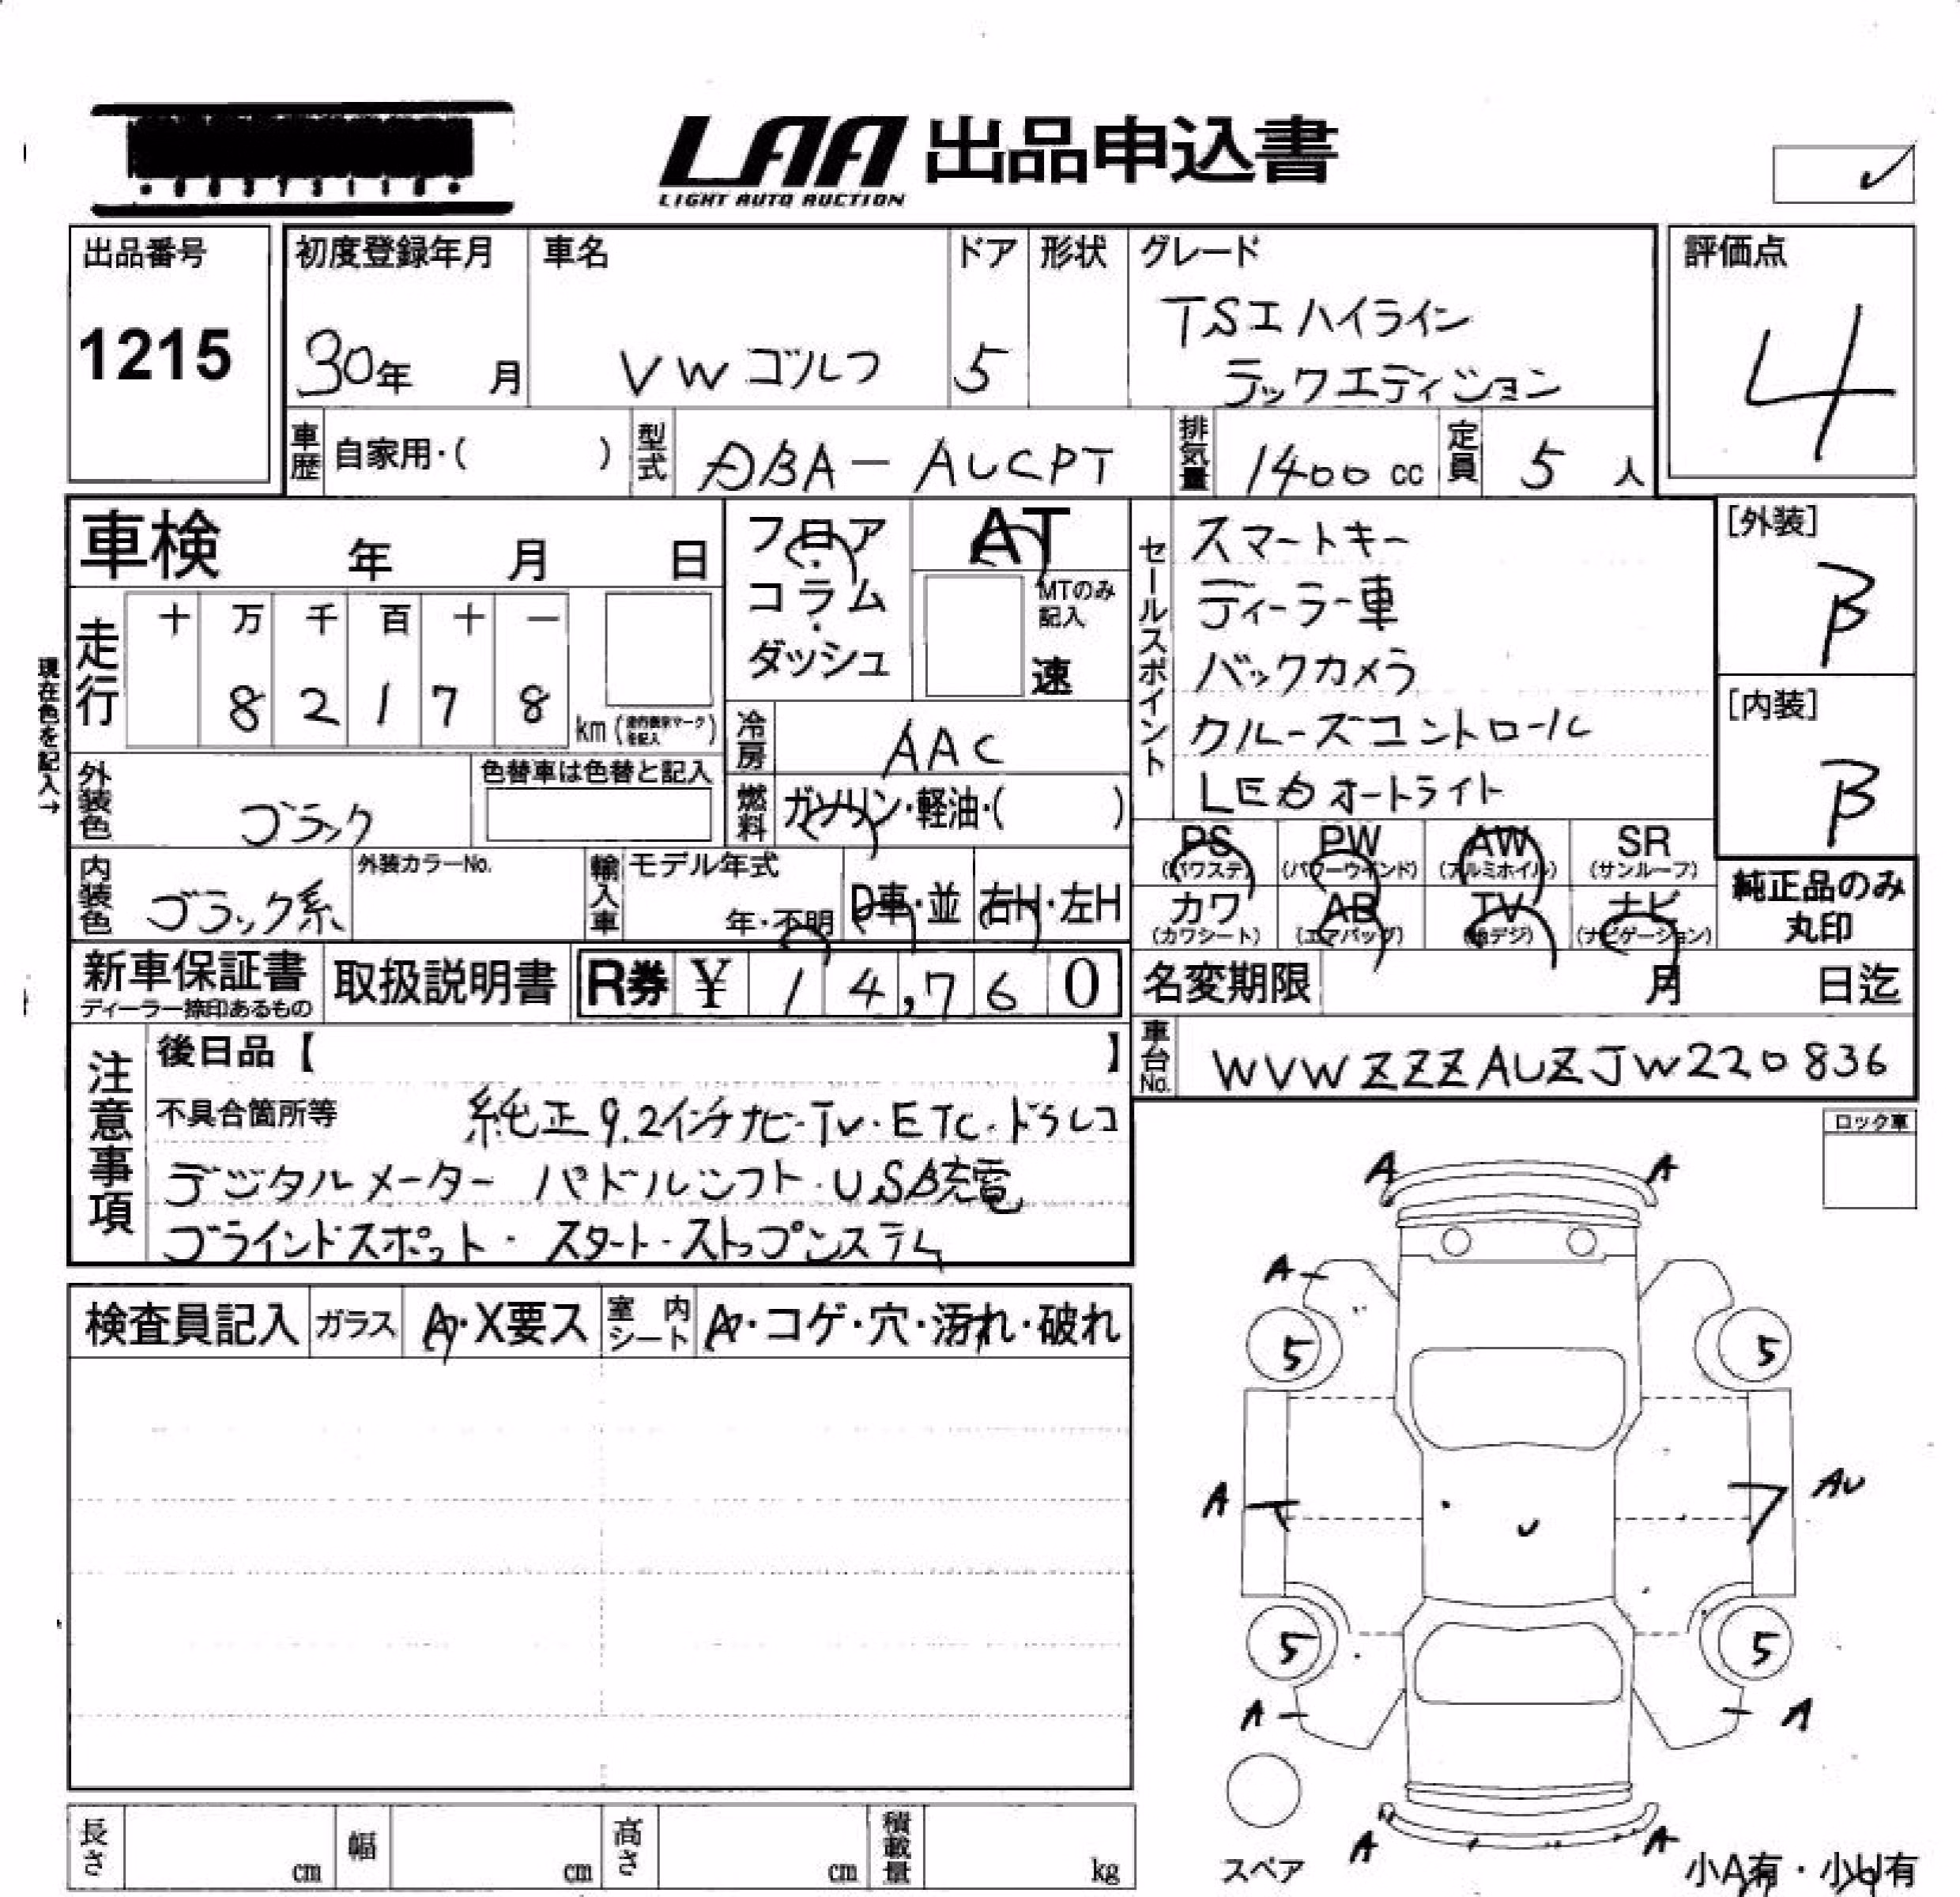 LAA 出品申込書
LIGHT AUTO AUCTION
出品番号
1215
初度登録年月
30年 月
車名
VW ゴルフ
ドア
5
形状
グレード
TSI ハイライン
テックエディション
評価点
4
車歴 自家用・( )
型式 ABA-AUCPT
排気量 1400 cc
定員 5 人
車検 年 月 日
フロア・コラム・ダッシュ
AT
MTのみ記入
速
セールスポイント
スマートキー
ディーラー車
バックカメラ
クルーズコントロール
LEDオートライト
[外装]
B
[内装]
B
現在色を記入→
走行
十 万 千 百 十 一
8 2 1 7 8
km
冷房 AAC
燃料 ガソリン・軽油・( )
外装色 ブラック
色替車は色替と記入
内装色 ブラック系
外装カラーNo.
輸入車
モデル年式
年・不明
D車・並
右H・左H
PS (パワステ)
PW (パワーウインド)
AW (アルミホイル)
SR (サンルーフ)
カワ (カワシート)
AB (エアバッグ)
TV (地デジ)
ナビ (ナビゲーション)
純正品のみ
丸印
新車保証書
ディーラー捺印あるもの
取扱説明書
R券 ¥ 14,760
名変期限 月 日迄
車台No. WVWZZZAUZJW220836
注意事項
後日品【 】
不具合箇所等 純正9.2インチナビ・TV・ETC・ドラレコ
デジタルメーター パドルシフト・USB充電
ブラインドスポット・ スタート・ストップシステム
ロック車
検査員記入
ガラス A・X要ス
室内シート A・コゲ・穴・汚れ・破れ
A A
A
5 5
A AU
5 5
A A
A A
スペア
小A有・小U有
長さ cm
幅 cm
高さ cm
積載量 kg